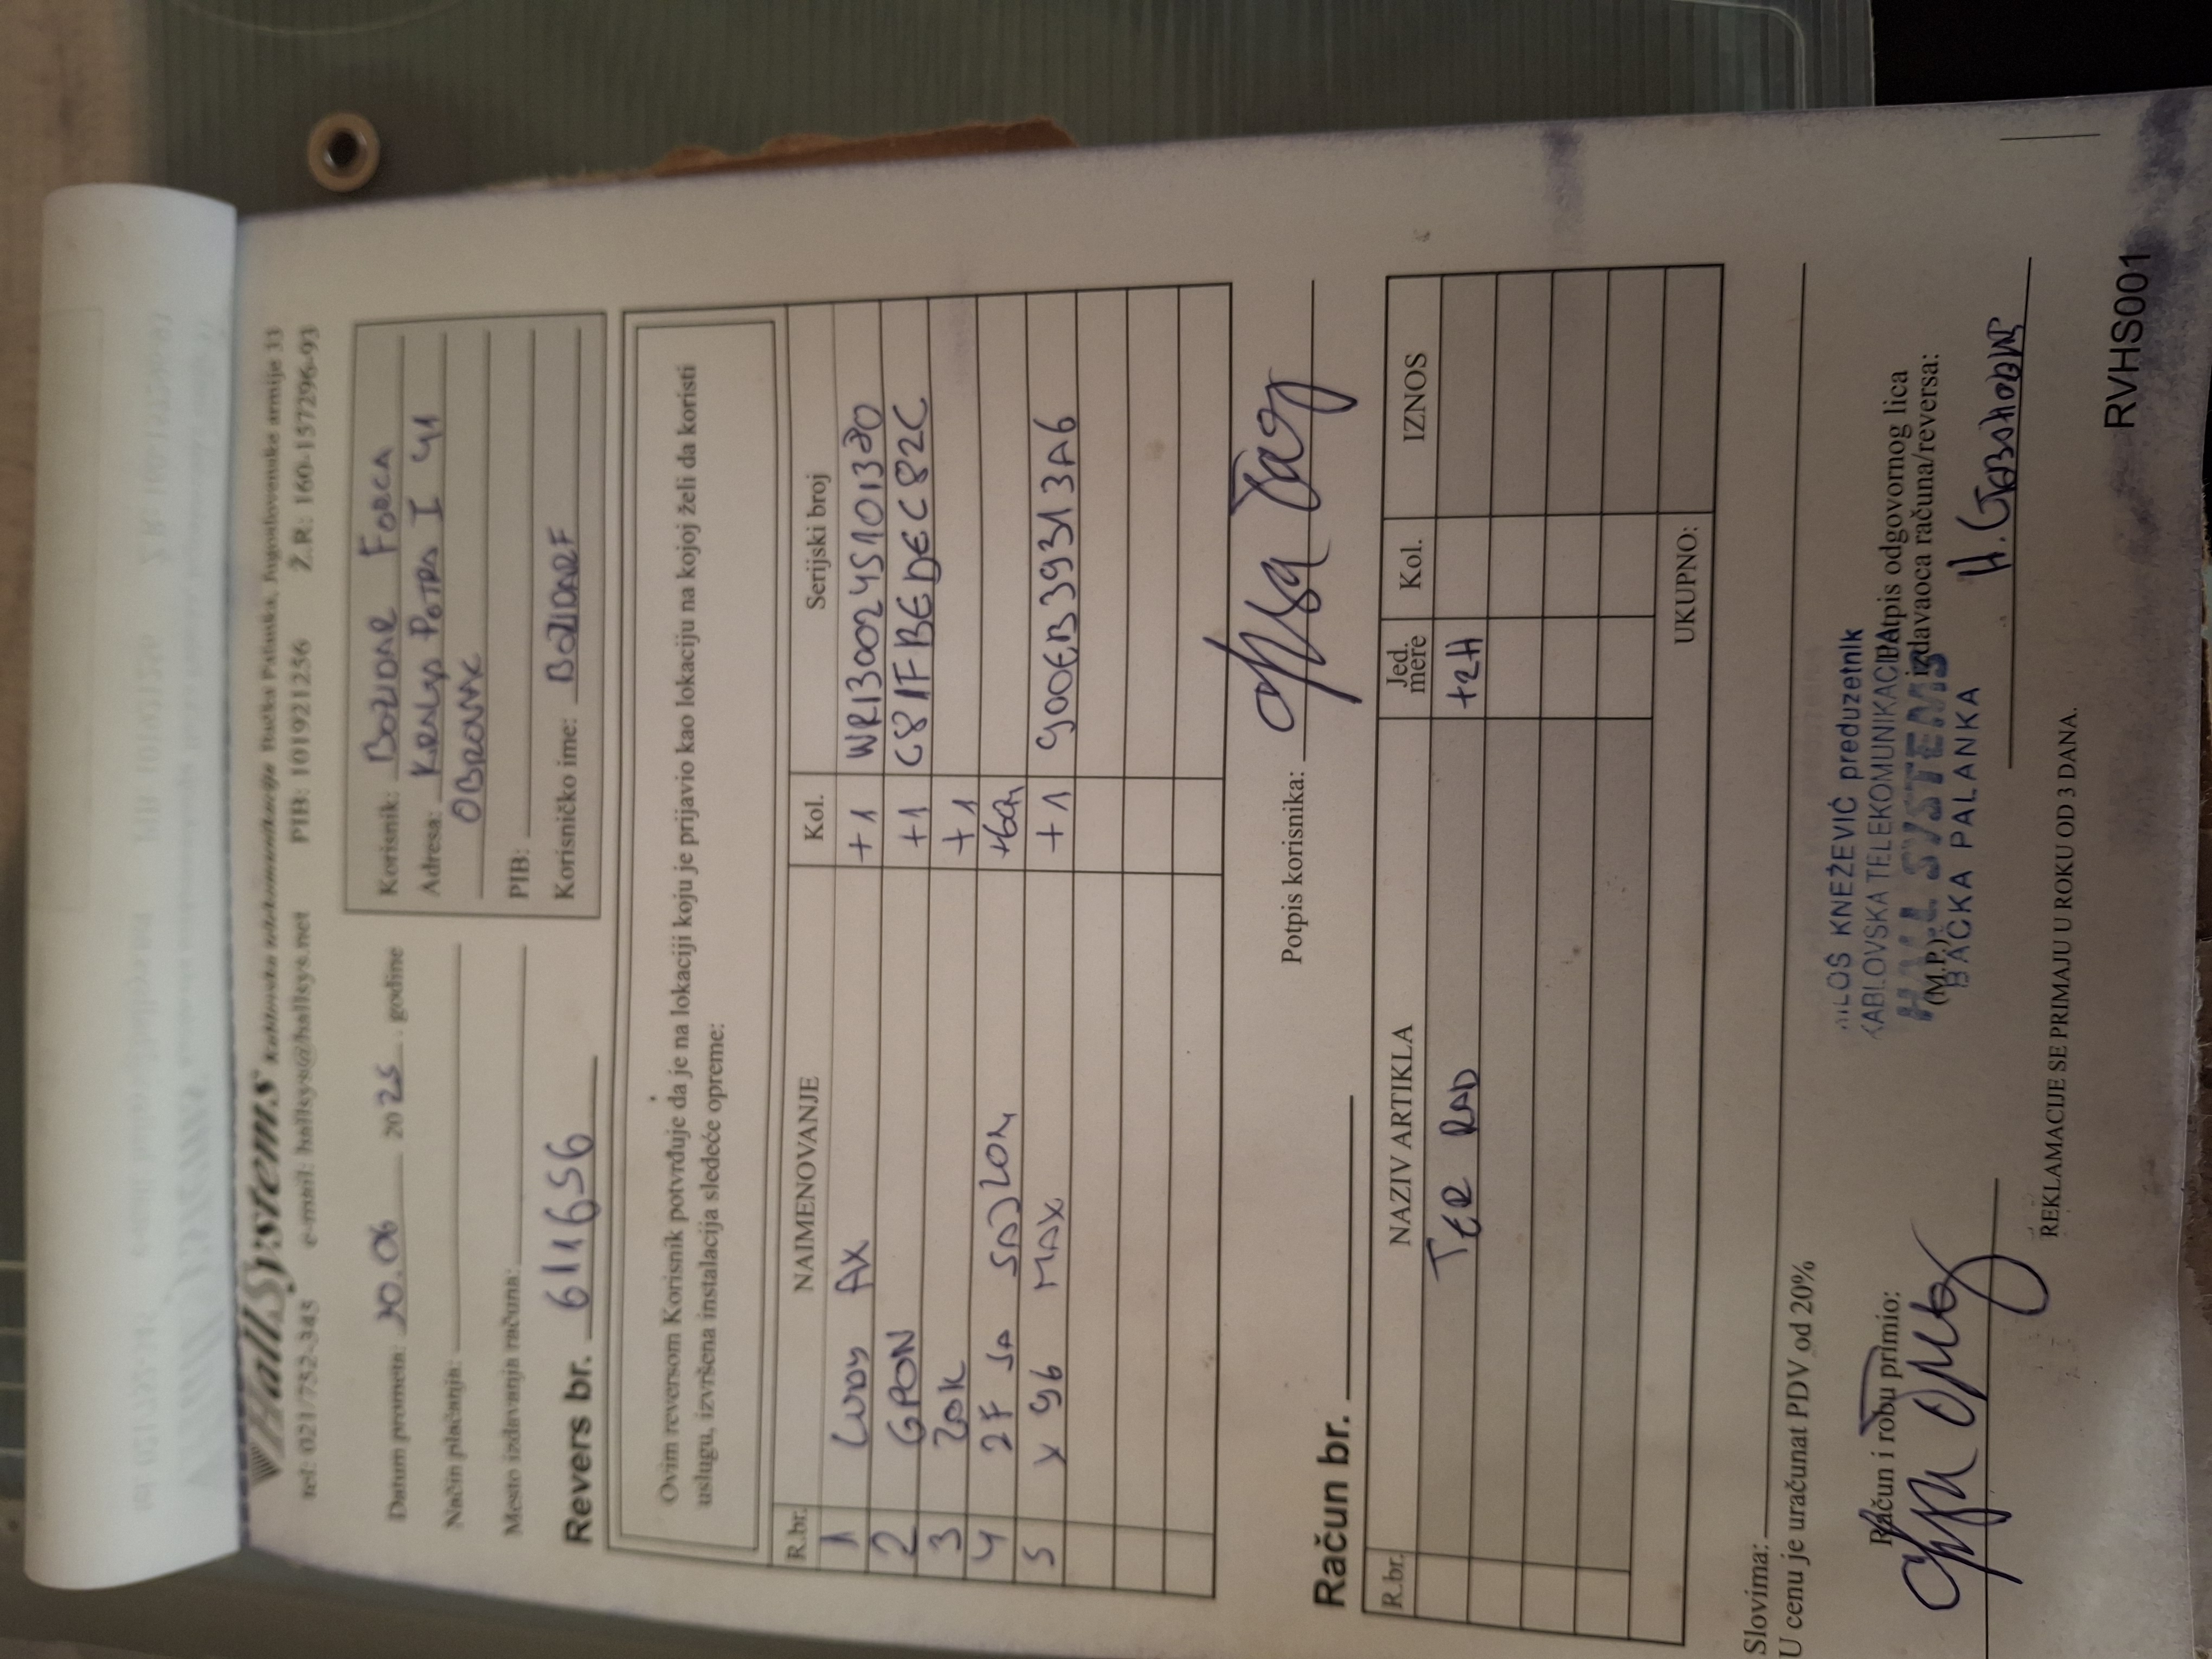 HallSystems Kablovska telekomunikacija Bačka Palanka, Jugoslovenske armije 33
tel: 021/752-345 e-mail: hallsys@hallsys.net PIB: 101921256 Ž.R: 160-157296-93
Datum prometa: 30.06 2025. godine
Način plaćanja:
Mesto izdavanja računa:
Korisnik: BOZIDAR FORCA
Adresa: KRALJA PETRA I 41
OBROVAC
PIB:
Korisničko ime: BOZIDARF
Revers br. 611656
Ovim reversom Korisnik potvrđuje da je na lokaciji koju je prijavio kao lokaciju na kojoj želi da koristi
uslugu, izvršena instalacija sledeće opreme:
R.br. NAIMENOVANJE Kol. Serijski broj
1 AX +1
2 GPON +1 C81FBEDEC82C
3 ZOK +1
4 2F SA SAJLOM
5 X 96 MAX +1 900EB39313A6
Potpis korisnika:
Račun br.
R.br. NAZIV ARTIKLA Jed. mere Kol. IZNOS
TER RAD +2H
UKUPNO:
Slovima:
U cenu je uračunat PDV od 20%
Račun i robu primio:
MILOŠ KNEŽEVIĆ preduzetnik
KABLOVSKA TELEKOMUNIKACIJA
HALL SYSTEMS
BAČKA PALANKA
(M.P.)
Potpis odgovornog lica
izdavaoca računa/reversa:
REKLAMACIJE SE PRIMAJU U ROKU OD 3 DANA.
RVHS001